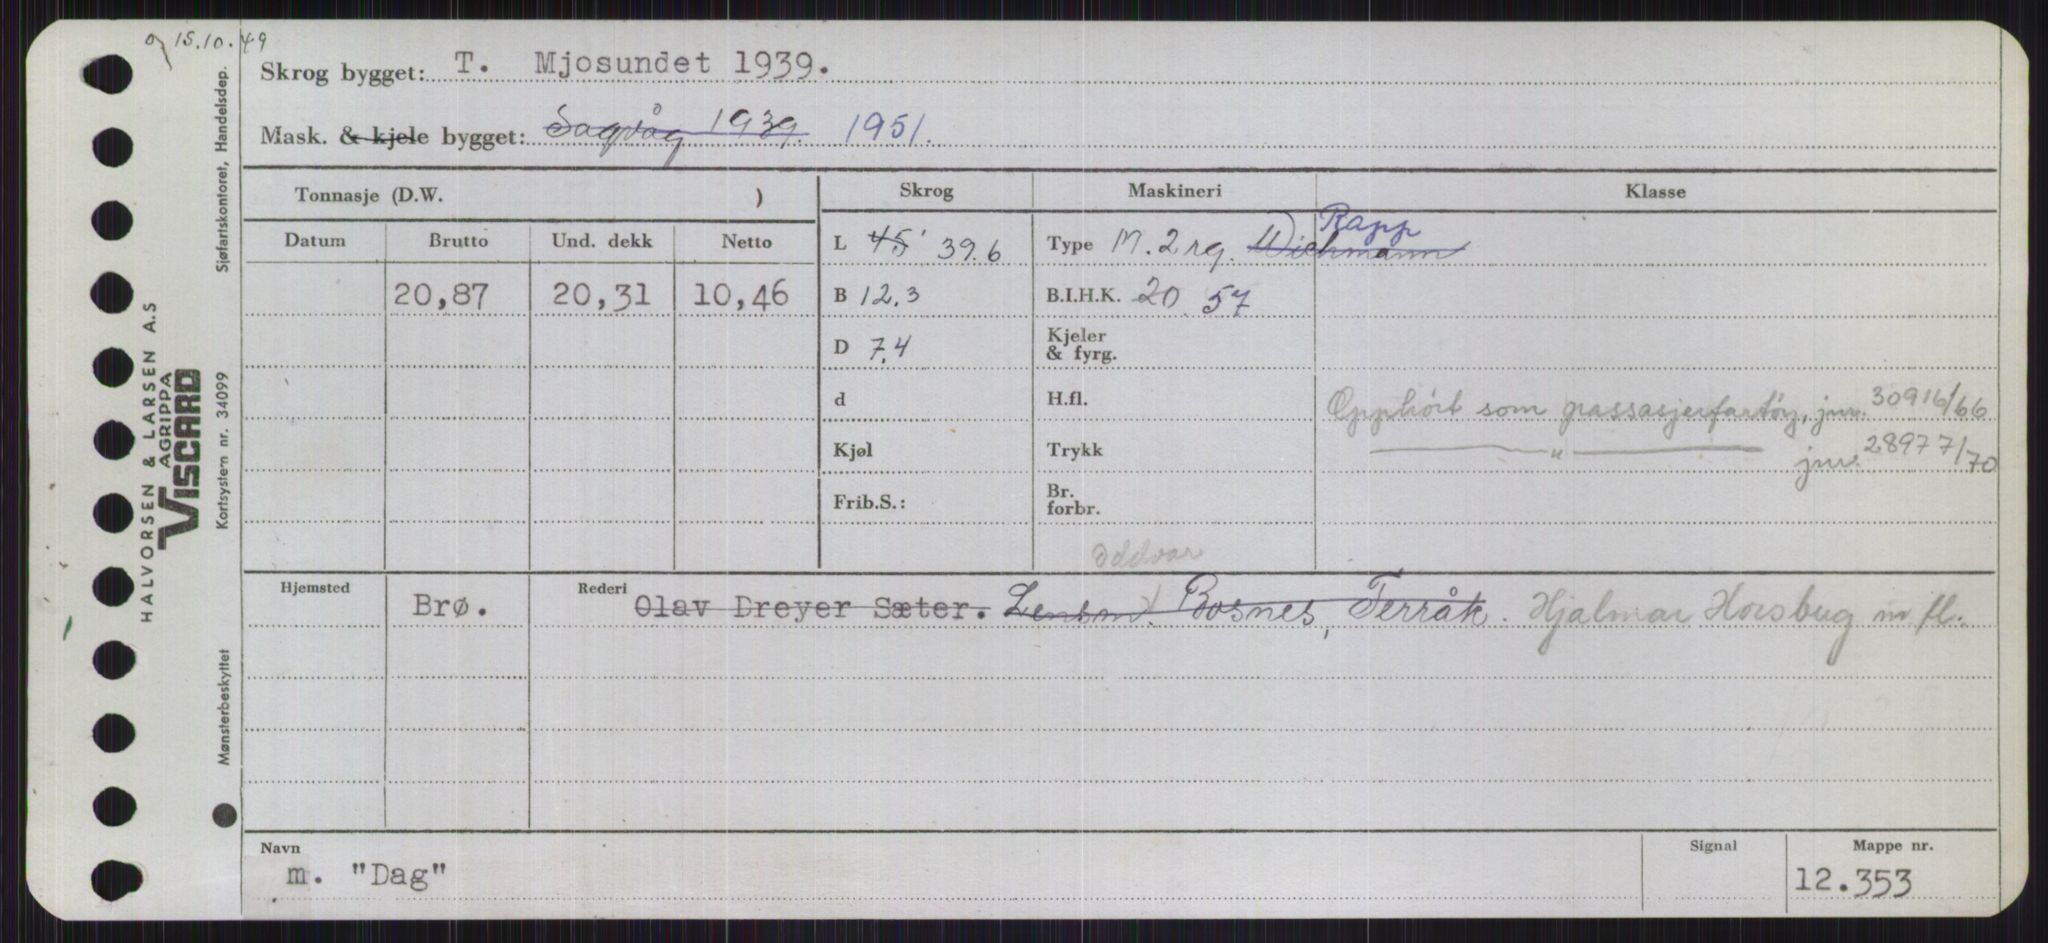 15.10.49
Skrog bygget: T. Mjosundet 1939.
Mask. & kjele bygget: Sagvåg 1939. 1951.
Tonnasje (D.W. )
Skrog
Maskineri
Klasse
Datum
Brutto
Und. dekk
Netto
20,87
20,31
10,46
L 45' 39.6
B 12.3
D 7.4
d
Kjøl
Frib.S.:
Type M. 2 rg. Wichmann Rapp
B.I.H.K. 20 57
Kjeler
& fyrg.
H.fl.
Trykk
Br.
forbr.
Opphört som passasjerfartöy, jnr. 30916/66
" jnr. 28977/70
Oddvar
Hjemsted
Brø.
Rederi
Olav Dreyer Sæter. Lensm. Bosnes, Terråk. Hjalmar Horsbug m fl.
Navn
m. "Dag"
Signal
Mappe nr.
12.353
HALVORSEN & LARSEN A.S
AGRIPPA
VISCARD
Sjøfartskontoret, Handelsdep.
Kortsystem nr. 34099
Mønsterbeskyttet